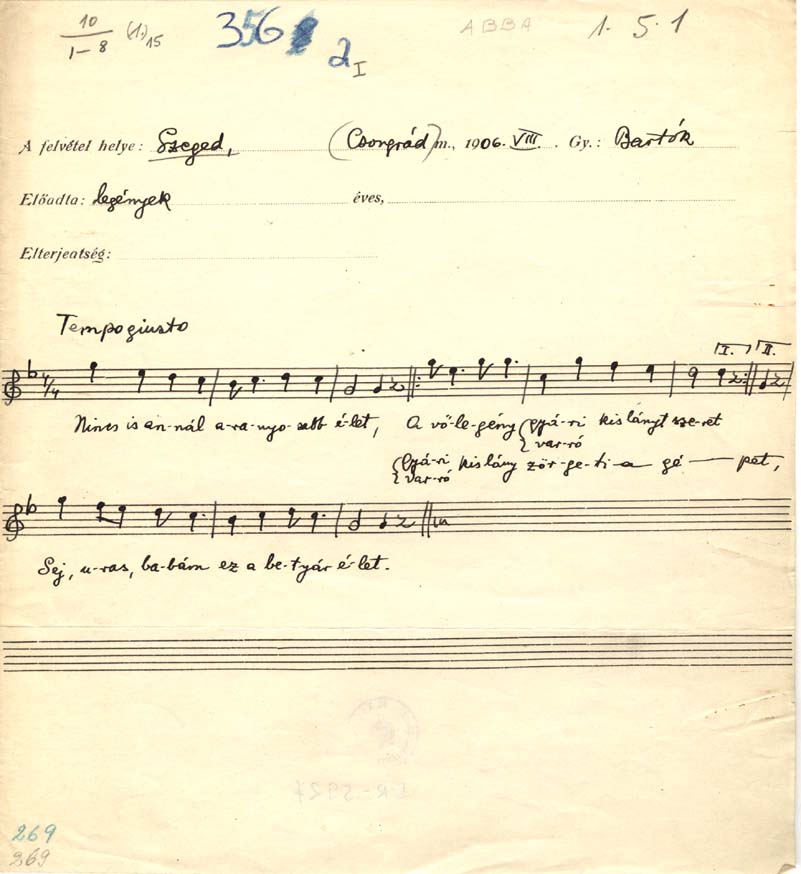 10
1-8 (1.) 15
356 2 I
ABBA
1. 5. 1
A felvétel helye: Szeged, (Csongrád) m., 1906. VIII. Gy.: Bartók
Előadta: legények éves,
Elterjeatség:
Tempo giusto
I. II.
4/4
Nincs is an-nál a-ra-nyo-sabb é-let, A vő-le-gény gyá-ri kislányt sze-ret
var-ró
gyá-ri kislány zör-ge-ti a gé - pet,
var-ró
Sej, u-ras, ba-bám ez a be-tyár é-let.
269
269